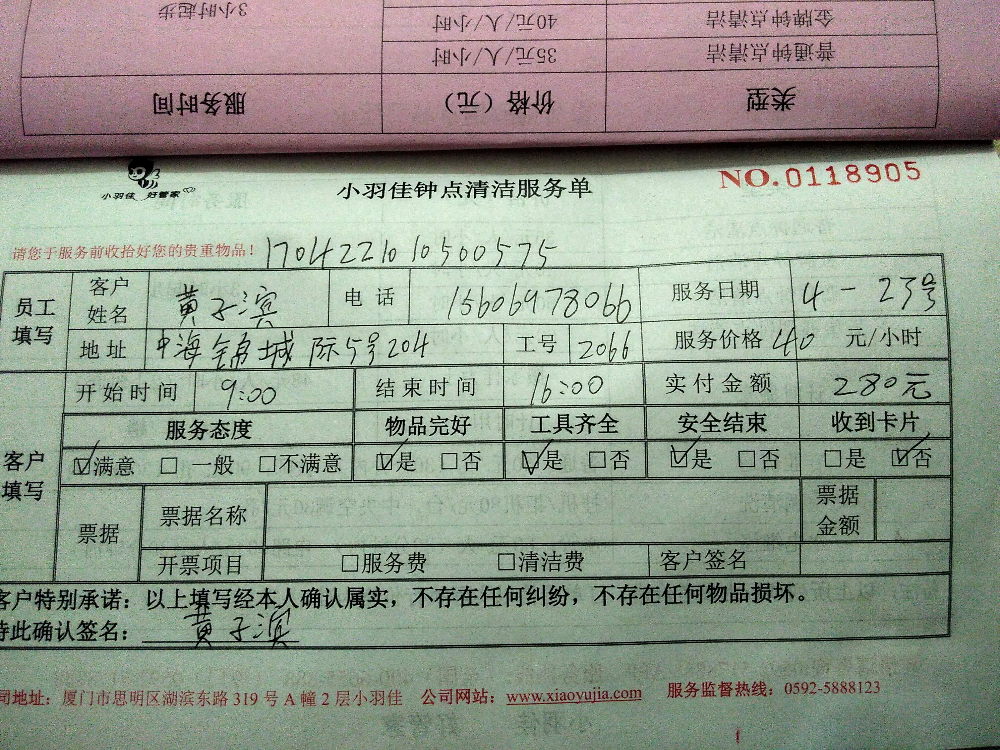 3小时起步
40元/人/小时
金牌钟点清洁
35元/人/小时
普通钟点清洁
服务时间
价格（元）
类型
小羽佳 好管家
小羽佳钟点清洁服务单
NO.0118905
请您于服务前收拾好您的贵重物品！
17042210105 00575
员工填写
客户姓名 黄子滨 电话 15606978066 服务日期 4-23号
地址 中海锦城际5号204 工号 2066 服务价格 40 元/小时
开始时间 9:00 结束时间 16:00 实付金额 280元
客户填写
服务态度 物品完好 工具齐全 安全结束 收到卡片
☑满意 □一般 □不满意 ☑是 □否 ☑是 □否 ☑是 □否 □是 ☑否
票据 票据名称 票据金额
开票项目 □服务费 □清洁费 客户签名
客户特别承诺：以上填写经本人确认属实，不存在任何纠纷，不存在任何物品损坏。
特此确认签名： 黄子滨
司地址：厦门市思明区湖滨东路 319 号 A 幢 2 层小羽佳 公司网站：www.xiaoyujia.com 服务监督热线：0592-5888123